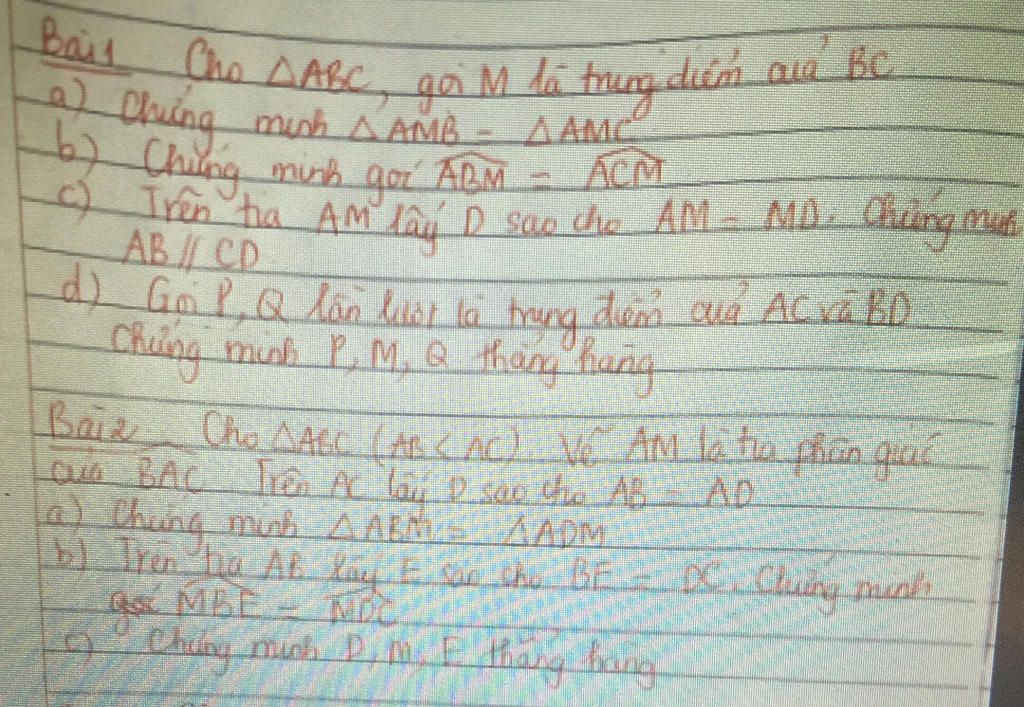 Bài 1 Cho △ABC, gọi M là trung điểm của BC
a) Chứng minh △AMB = △AMC
b) Chứng minh góc ABM = ACM
c) Trên tia AM lấy D sao cho AM = MD. Chứng minh
AB // CD
d) Gọi P, Q lần lượt là trung điểm của AC và BD
Chứng minh P, M, Q thẳng hàng
Bài 2 Cho △ABC (AB < AC). Vẽ AM là tia phân giác
của BAC Trên AC lấy D sao cho AB = AD
a) Chứng minh △ABM = △ADM
b) Trên tia AB lấy E sao cho BE = DC. Chứng minh
góc MBE = MDC
c) Chứng minh D, M, E thẳng hàng